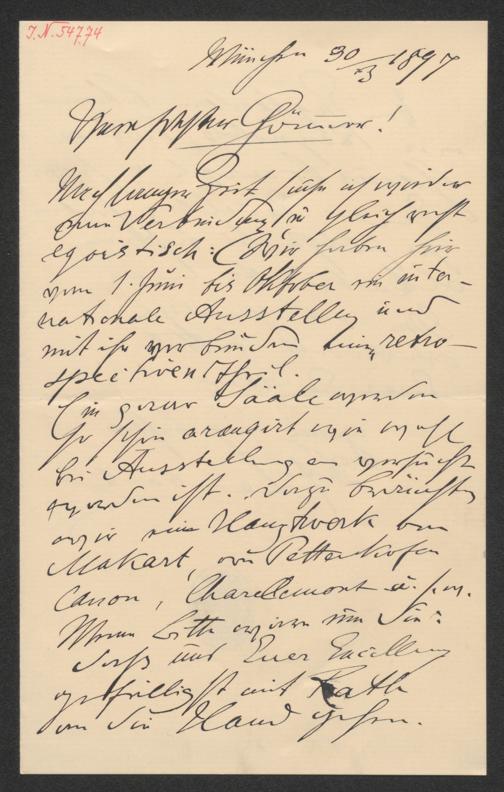 I.N. 54774
München 30/3 1897
Nach langer Zeit suche ich wieder
eine Verbindung u. gleich recht
egoistisch: Wir haben hier
vom 1. Juni bis Oktober eine inter-
nationale Ausstellung und
mit ihr verbunden einen „retro-
spectiven Theil.
Ein paar Sääle werden
so schön arangirt wie wohl
bei Ausstellungen versucht
worden ist. Dazu brauchten
wir ein Hauptwerk von
Makart, von Pettenkofen
Canon, Charlemont u. s. w.
Meine Bitte wäre nun die:
dass uns Euer Excellenz
gefälligst mit Rath
an die Hand gehen.